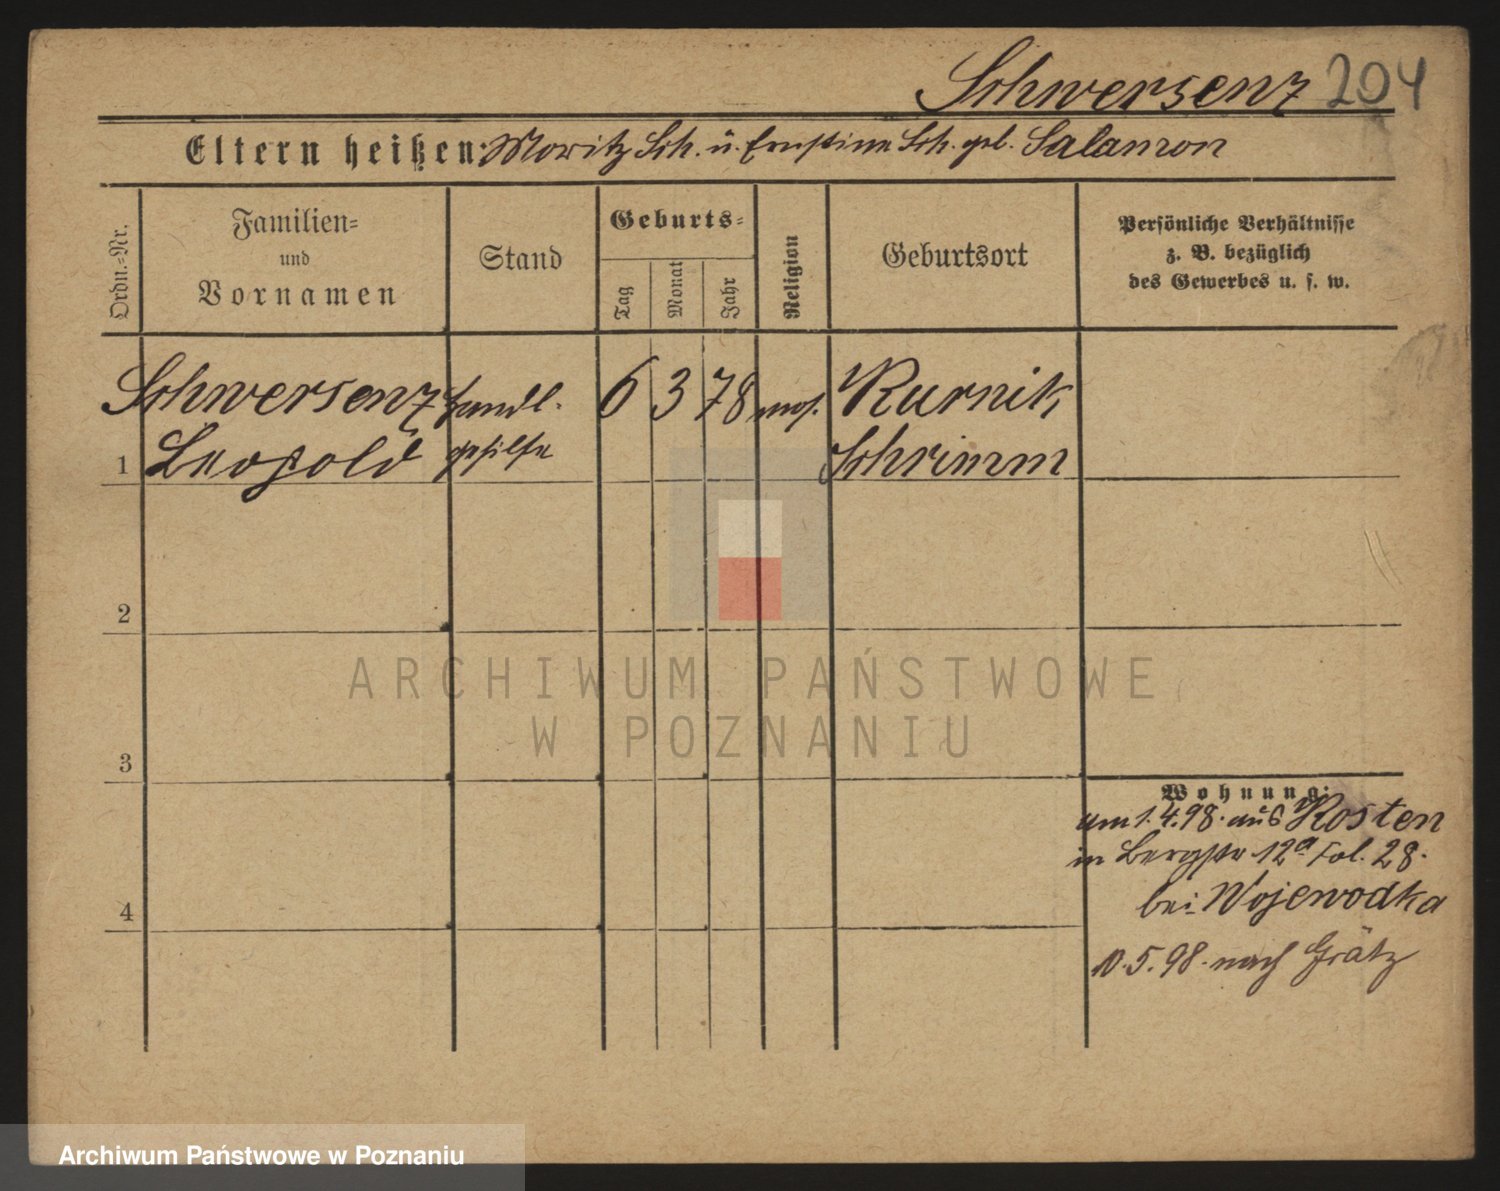 Schwersenz 204
Eltern heißen: Moritz Sch. u. Ernstine Sch. geb. Salamon
Ordn.-Nr.
Familien-
und
Vornamen
Stand
Geburts-
Tag
Monat
Jahr
Religion
Geburtsort
Persönliche Verhältnisse
z. B. bezüglich
des Gewerbes u. s. w.
Schwersenz Handl. 6 3 78 mos. Kurnik
1 Leopold gehilfe Schrimm
2
3
4
Wohnung:
am 1.4.98. aus Kosten
in Bergstr 12a Fol. 28.
bei Wojewodka
10.5.98. nach Grätz
ARCHIWUM PAŃSTWOWE
W POZNANIU
Archiwum Państwowe w Poznaniu